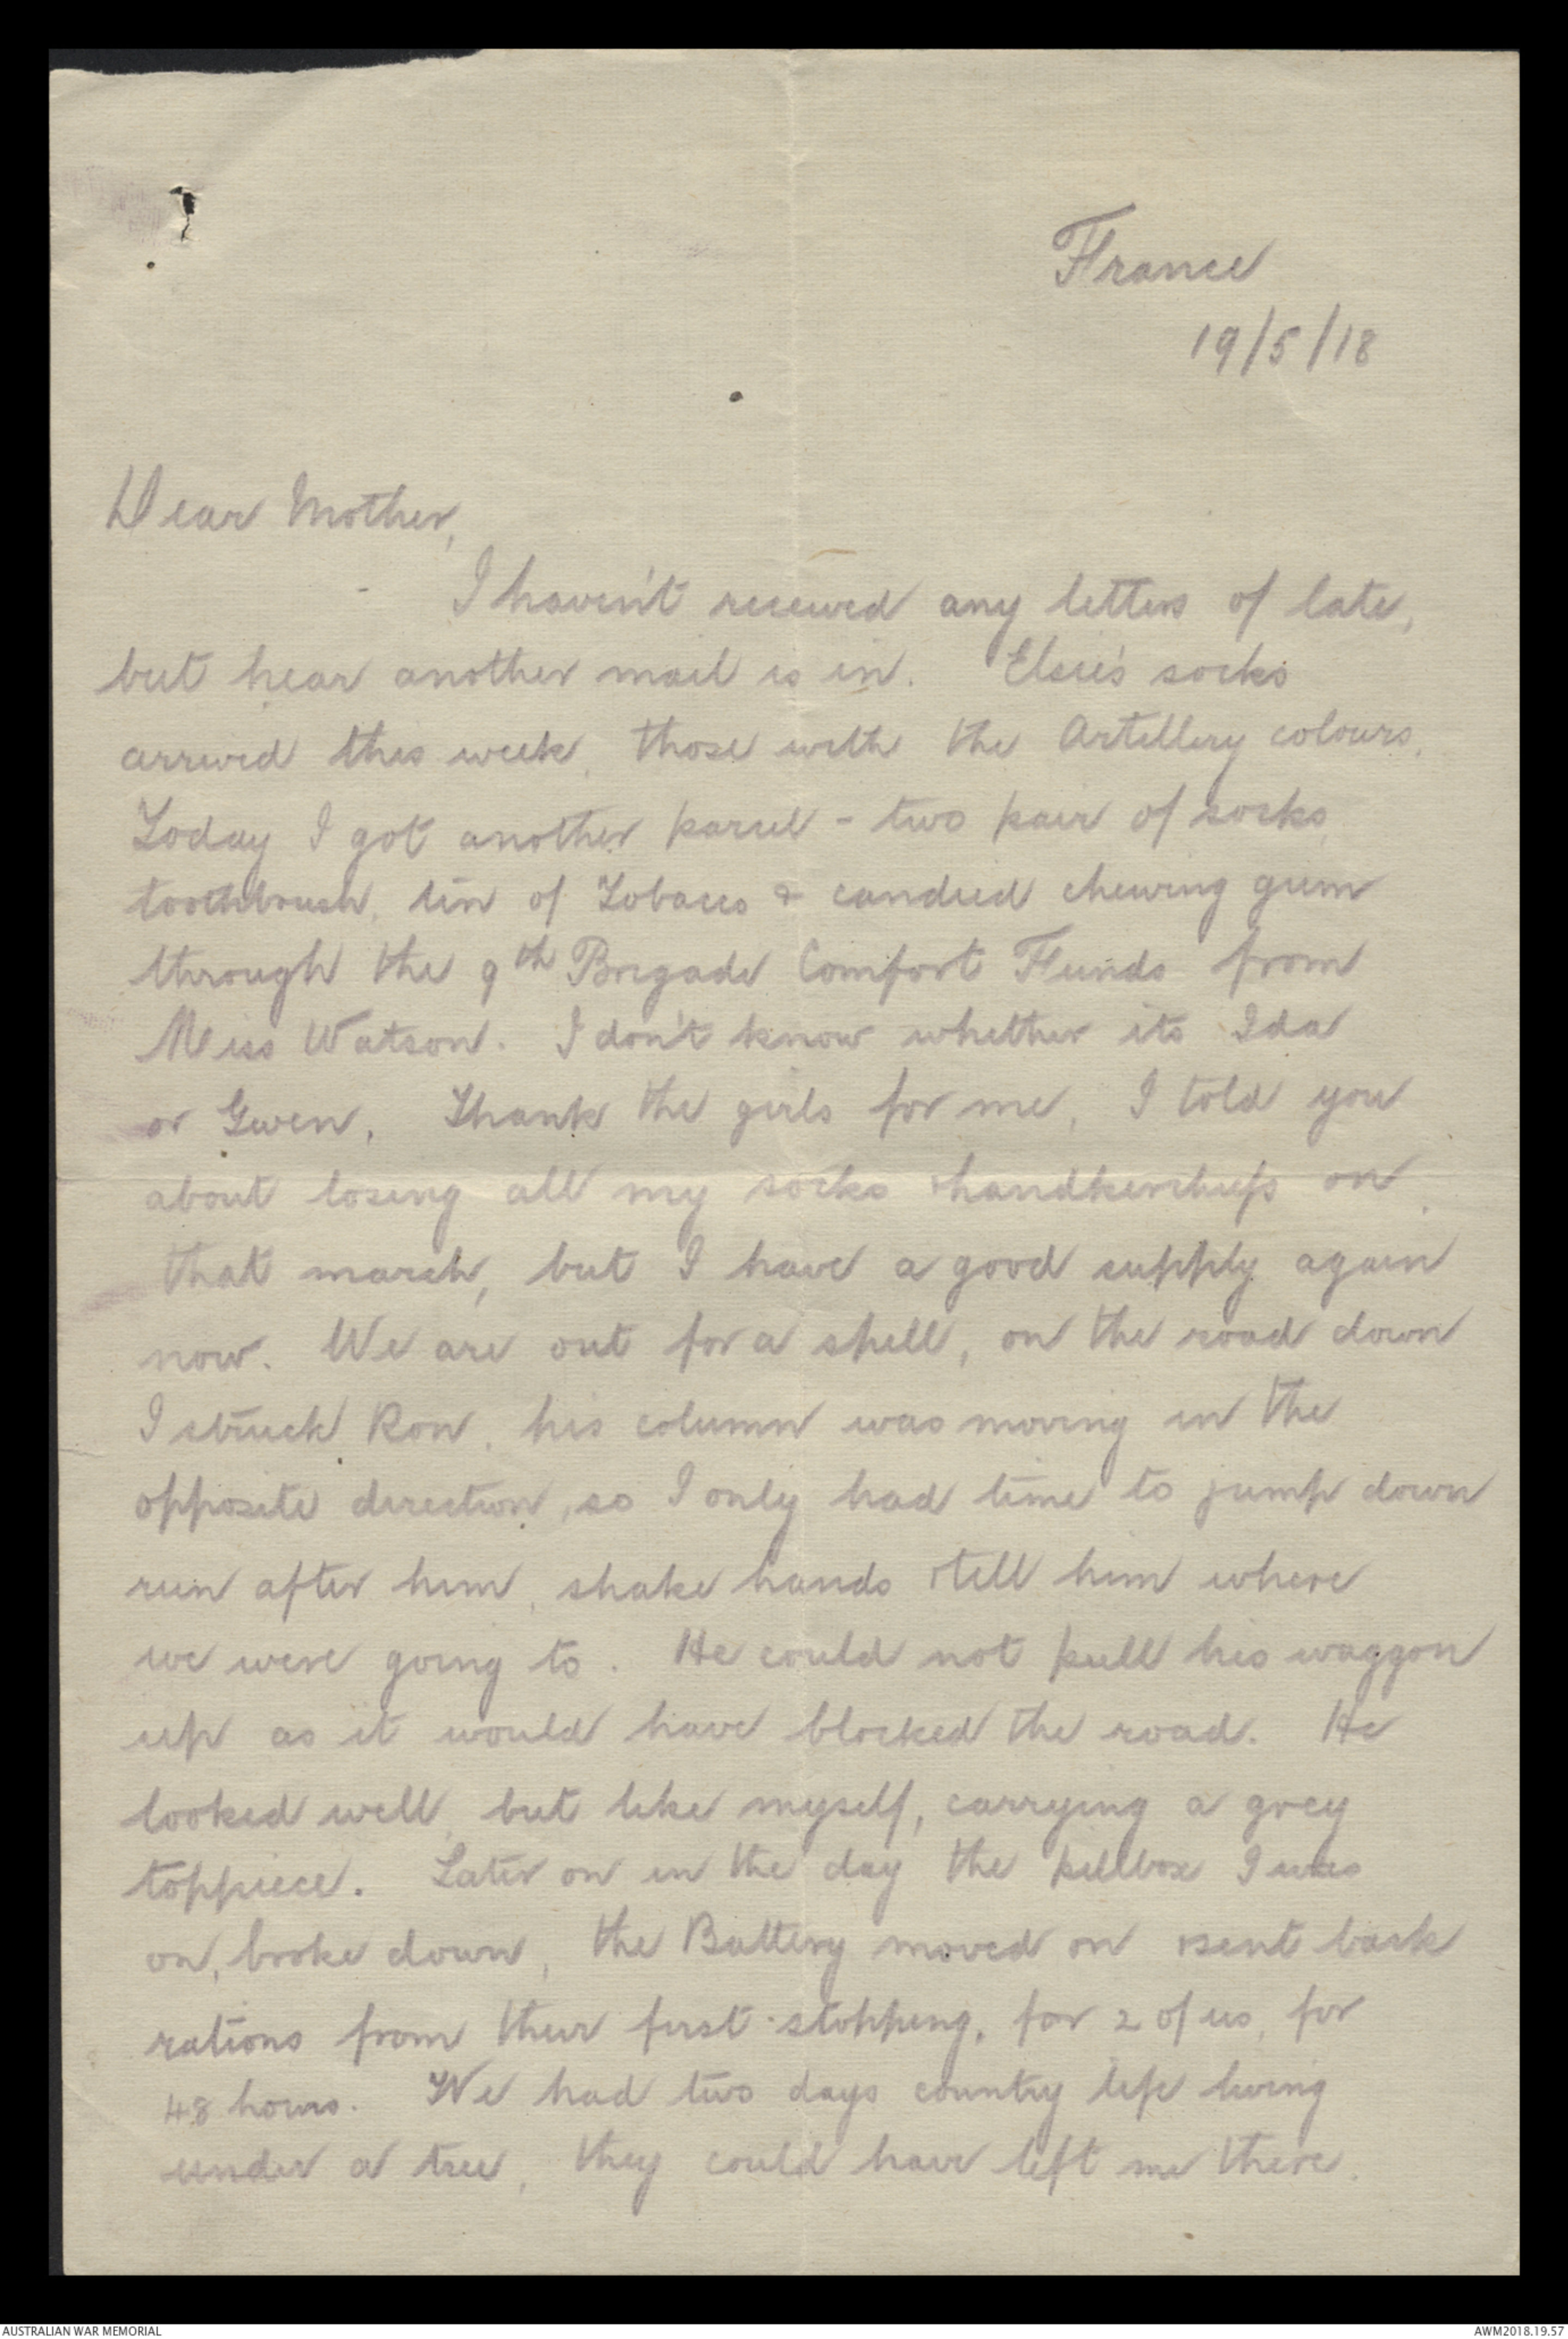 France
19/5/18
Dear Mother,
I haven't received any letters of late,
but hear another mail is in. Elsie's socks
arrived this week, those with the Artillery colours.
Today I got another parcel - two pair of socks,
toothbrush, tin of Tobacco & candied chewing gum
through the 9th Brigade Comfort Funds from
Miss Watson. I don't know whether its Ida
or Gwen. Thank the girls for me, I told you
about losing all my socks & handkerchiefs on
that march, but I have a good supply again
now. We are out for a spell, on the road down
I struck Ron, his column was moving in the
opposite direction, so I only had time to jump down
run after him, shake hands & tell him where
we were going to. He could not pull his waggon
up as it would have blocked the road. He
looked well, but like myself, carrying a grey
toppiece. Later on in the day the pillbox I was
on, broke down, the Battery moved on & sent back
rations from their first stopping, for 2 of us, for
48 hours. We had two days country life living
under a tree, they could have left me there.
AUSTRALIAN WAR MEMORIAL
AWM2018.19.57